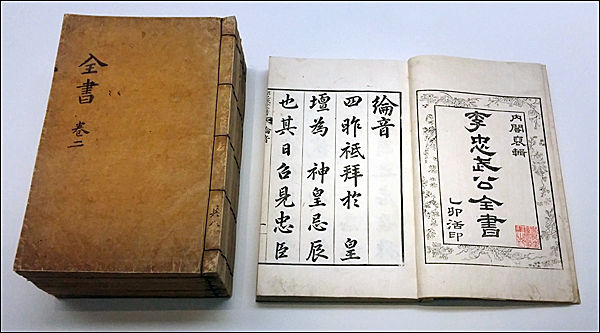 全書
卷二
共八
內閣裒輯
李忠武公全書
乙卯活印
綸音
四昨祗拜於 皇
壇為 神皇忌辰
也其日召見忠臣